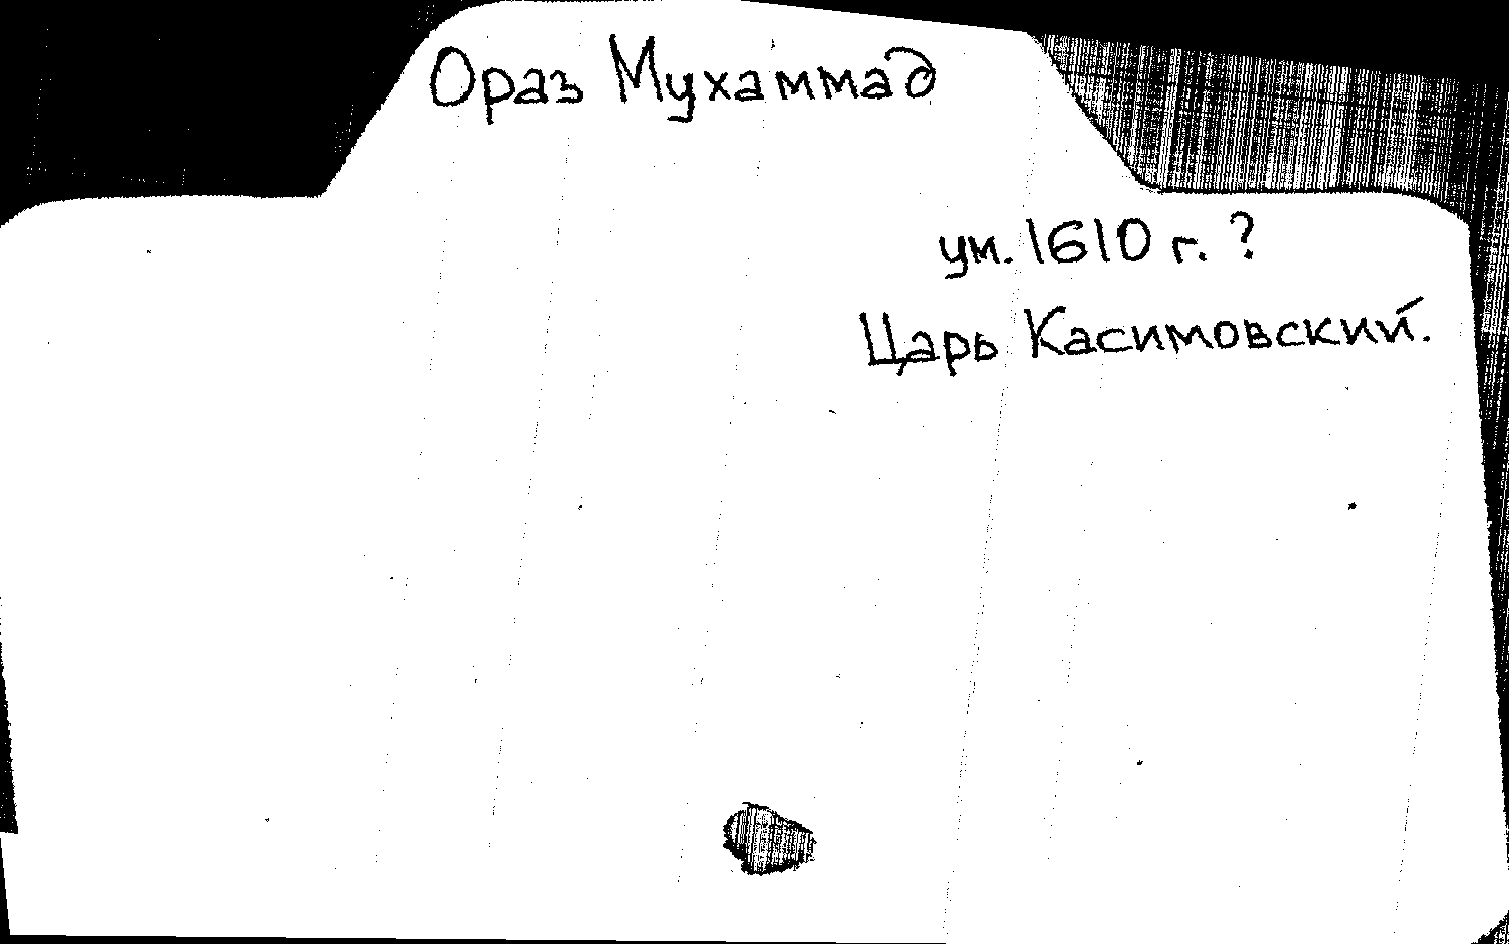 Ораз Мухаммад
ум. 1610 г. ?
Царь Касимовский.